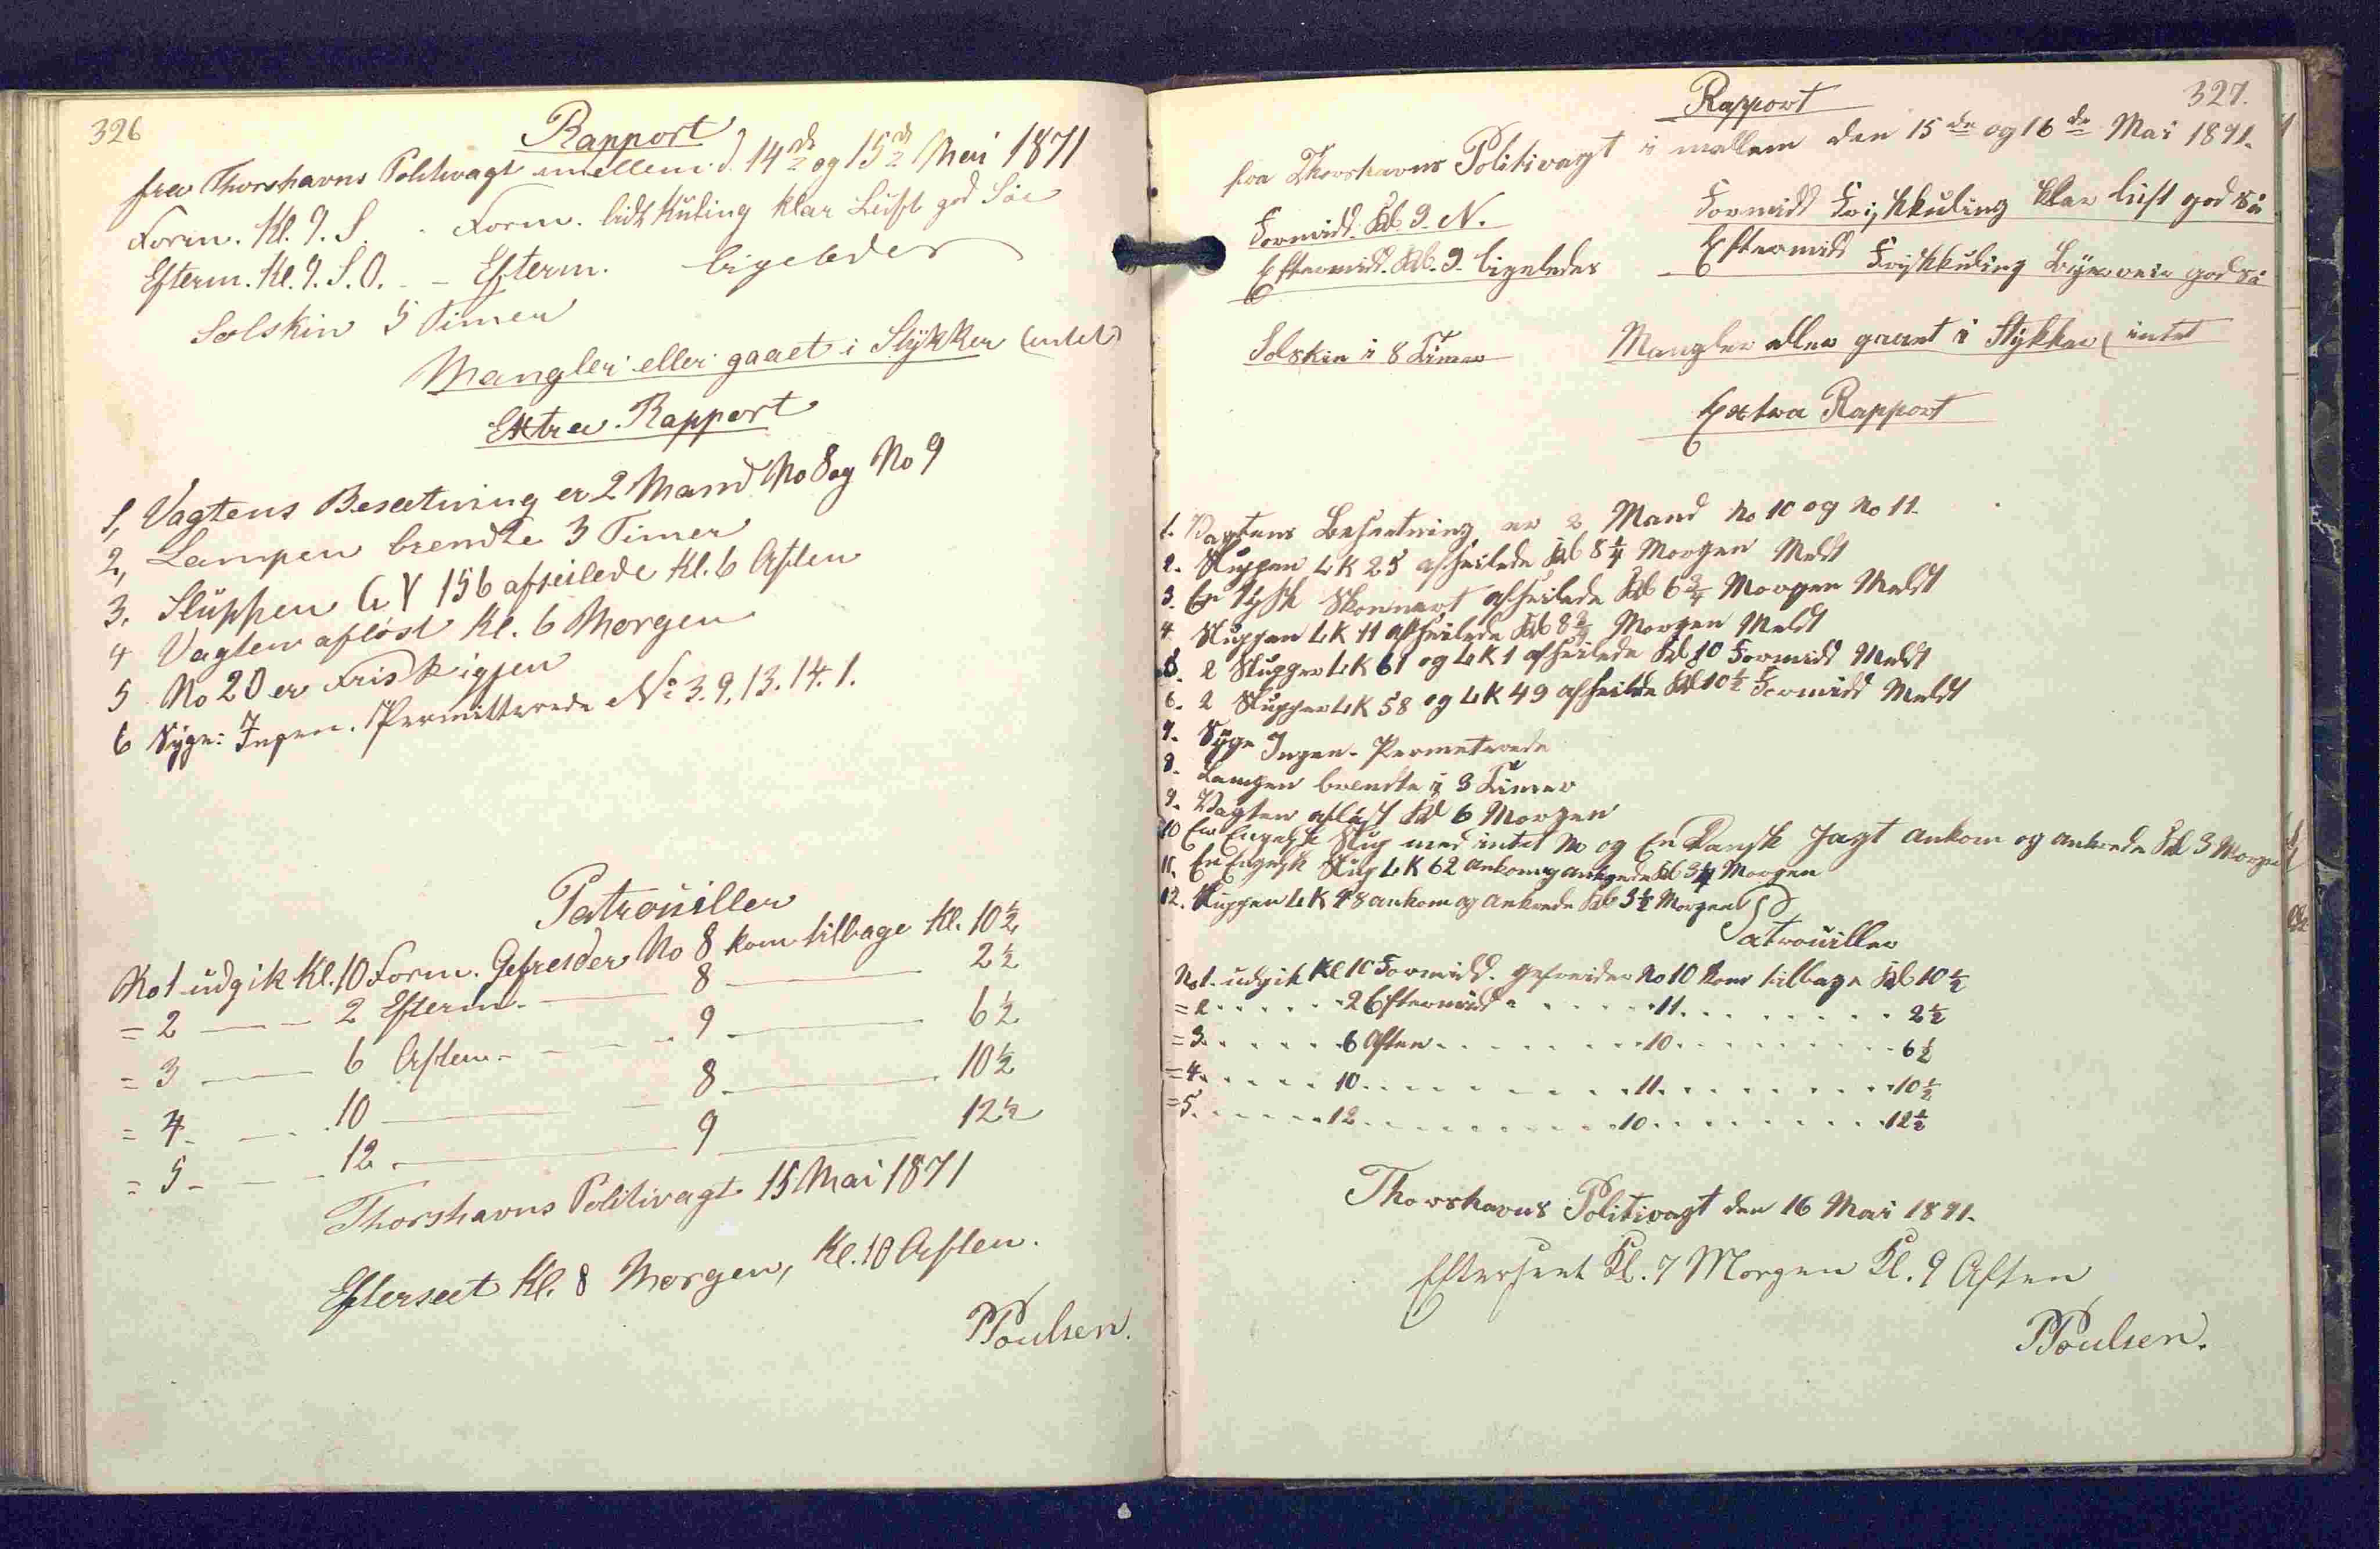 326
Rapport
fra Thorshavns Politivagt imellem d. 14de og 15de Mai 1871
Form. Kl. 9. S. - Form. lidt Kuling klar Luft god Söe
Efterm. Kl. 9. S.O. - - Efterm. ligeledes
Solskin 5 Timer
Mangler eller gaaet i Stykker (intet)
Extra Rapport
1, Vagtens Besætning er 2 Mand No 8 og No 9
2, Lampen brendte 3 Timer
3, Sluppen GY 156 afseilede Kl. 6 Aften
4 Vagten aflöst Kl. 6 Morgen
5 No 20 er Frisk igjen
6 Syge: Ingen. Permitterede No 3. 9, 13. 14. 1.
Patrouiller
No 1 udgik Kl. 10 Form. Gefreider No 8 kom tilbage Kl. 10½
= 2 — 2 Efterm. — 8 — 2½
= 3 — 6 Aften - — 9 — 6½
= 4 - — 10 — 8 — 10½
= 5 - — 12 — 9 — 12½
Thorshavns Politivagt 15 Mai 1871
Efterseet Kl. 8 Morgen, Kl. 10 Aften.
PPoulsen.
327.
Rapport
fra Thorshavns Politivagt i mellem den 15de og 16de Mai 1871.
Formidd. Kl. 9. N. Formidd Friskkuling klar luft god Sö
Eftermidd. Kl. 9. ligeledes Eftermidd Friskkuling god Sö
Solskin i 8 Timer Mangler eller gaaet i Stykker ( intet
Extra Rapport
1. Vagtens Besætning er 2 Mand No 10 og No 11.
2. Sluppen LK 25 afseilede Kl 8¼ Morgen Meldt
3. En tysk Skonnert afseilede Kl 6¾ Morgen Meldt
4. Sluppen LK 11 afseilede Kl 8¾ Morgen Meldt
5. 2 Slupper LK 61 og LK 1 afseilede Kl 10 Formidd Meldt
6. 2 Slupper LK 58 og LK 49 afseilede Kl 10½ Formidd Meldt
7. Syge Ingen. Permeterede
8. Lampen brendte i 3 Timer
9. Vagten aflöst Kl 6 Morgen
10 En Engelsk Slup med intet No og En Dansk Jagt ankom og ankrede Kl 3 Morgen
11. En Engelsk Slup LK 62 ankom og ankrede Kl 3¼ Morgen
12. Sluppen LK 48 ankom og ankrede Kl 3½ Morgen
Patrouiller
No 1. udgik Kl 10 Formidd. Gefreider No 10 kom tilbage Kl 10½
= 2 . . . . . 2 Eftermidd . . . . . 11. . . . . . . . 2½
= 3. . . . . . 6 Aften. . . . . . . 10. . . . . . . . 6½
= 4. . . . . 10. . . . . . . . . . 11. . . . . . . . 10½
= 5. . . . . 12. . . . . . . . . . 10. . . . . . . . 12½
Thorshavns Politivagt den 16 Mai 1871.
Efterseet Kl. 7 Morgen Kl. 9 Aften
PPoulsen.